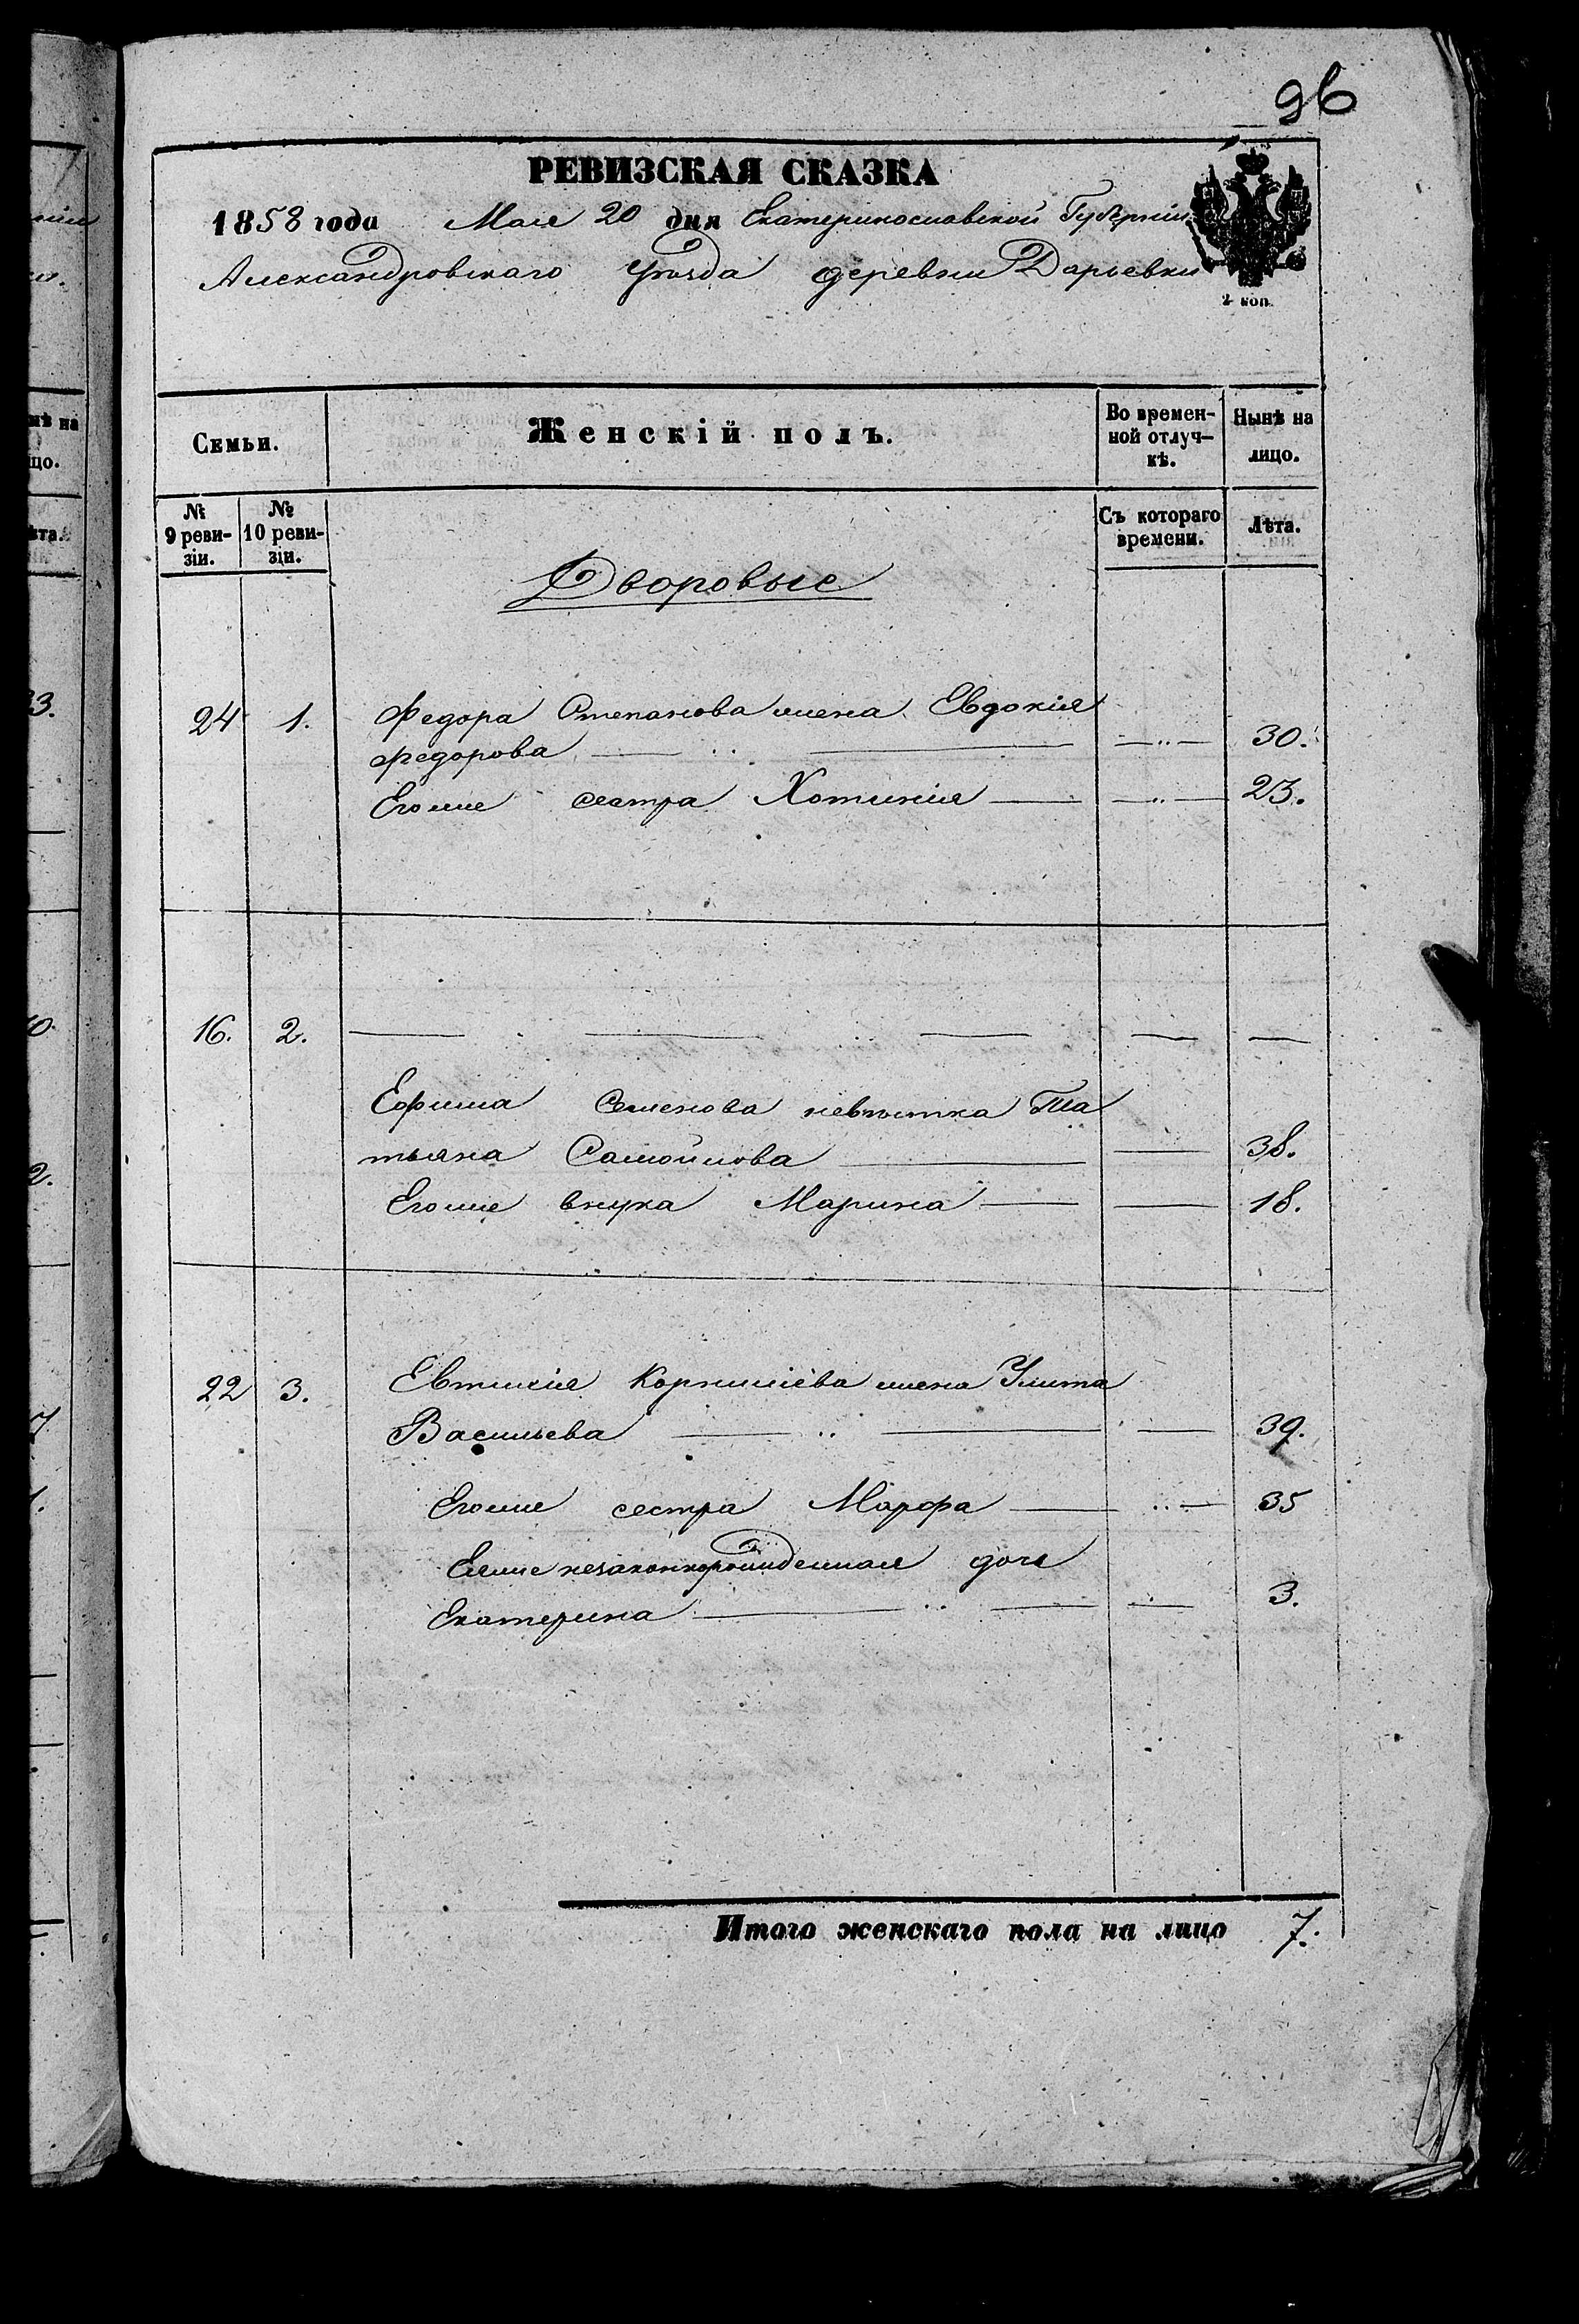 96
РЕВИЗСКАЯ СКАЗКА
1858 года Мая 20 дня Екатеринославской Губерніи
Александровскаго Уѣзда деревни Дарьевки
2 коп.
Семьи.
Женскій полъ.
Во времен-
ной отлуч-
кѣ.
Нынѣ на
лицо.
№
9 реви-
зіи.
№
10 реви-
зіи.
Съ котораго
времени.
Лѣта.
Дворовые
24 1. Федора Степанова жена Евдокія
Федорова 30.
Егоже сестра Хотинія 23.
16. 2.
Ефима Семенова невѣстка Та
тьяна Самойлова 38.
Егоже внука Марина 18.
22 3. Евтихія Корнилѣва жена Улита
Васильева 39.
Егоже сестра Марфа 35
Еяже незаконнорожденная дочь
Екатерина 3.
Итого женскаго пола на лицо 7.